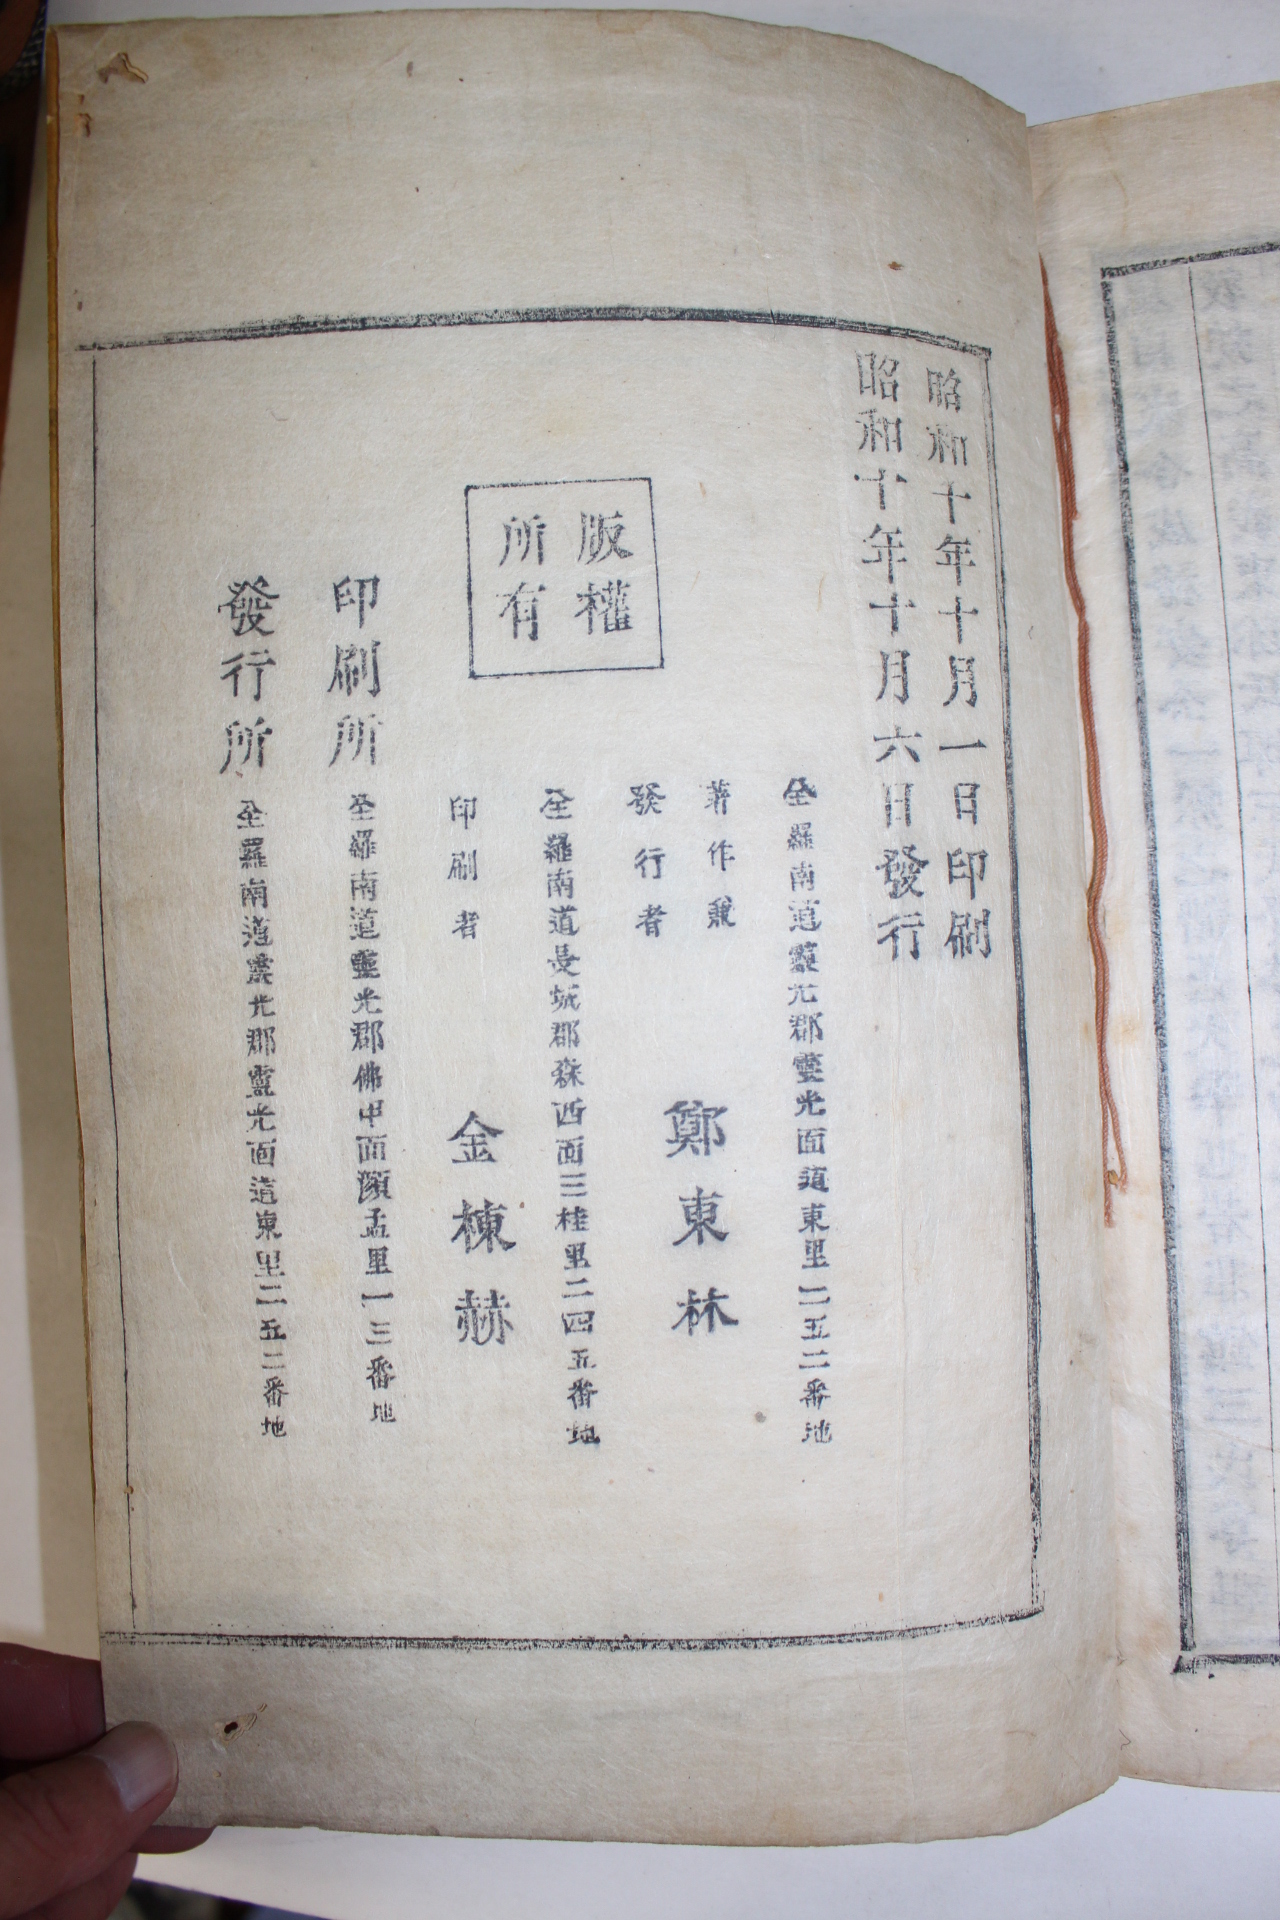 昭和十年十月一日印刷
昭和十年十月六日發行
全羅南道靈光郡靈光面道東里二五二番地
著作兼
發行者
鄭東林
版權
所有
全羅南道長城郡森西面三桂里二四五番地
印刷者
金棟赫
印刷所
全羅南道靈光郡佛甲面順孟里一三番地
發行所
全羅南道靈光郡靈光面道東里二五二番地